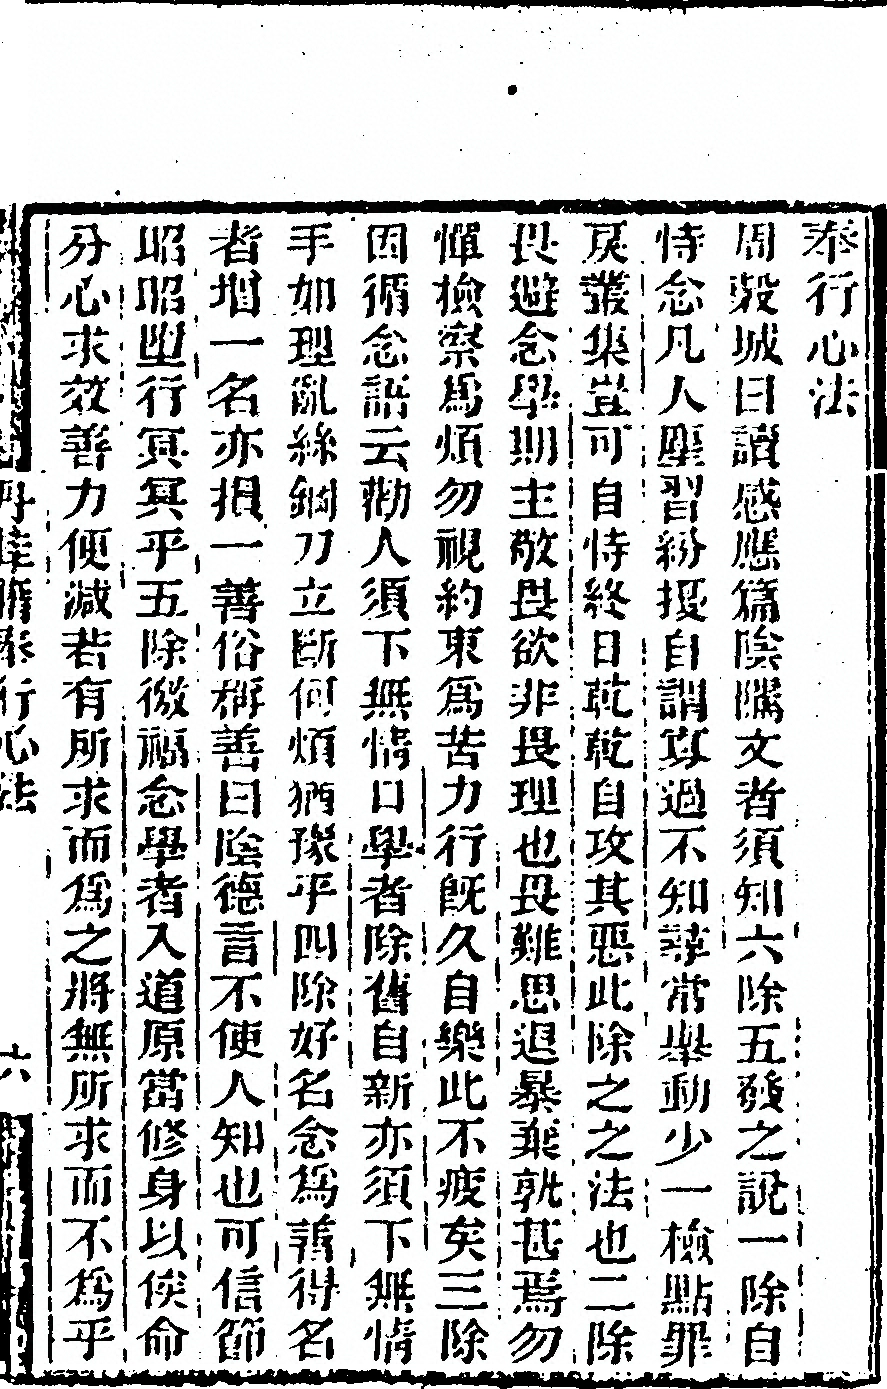 奉行心法
周毅城曰讀感應篇陰隲文者須知六除五發之說一除自
恃念凡人塵習紛擾自謂寡過不知尋常舉動少一檢點罪
戾叢集豈可自恃終日乾乾自攻其惡此除之之法也二除
畏避念學期主敬畏欲非畏理也畏難思退暴棄孰甚焉勿
憚檢察為煩勿視約束為苦力行既久自樂此不疲矣三除
因循念語云勸人須下無情口學者除舊自新亦須下無情
手如理亂絲鋼刀立斷何煩猶豫乎四除好名念為善得名
者增一名亦損一善俗稱善曰陰德言不使人知也可信節
昭昭墮行冥冥乎五除徼福念學者入道原當修身以俟命
分心求效善力便減若有所求而為之將無所求而不為乎
丹桂籍奉行心法
六